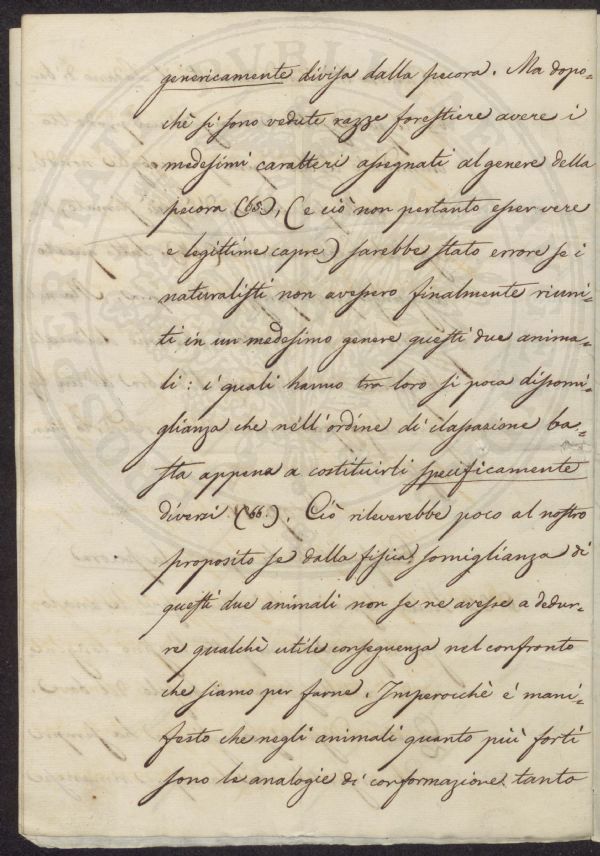 genericamente divisa dalla pecora. Ma dopo-
chè si sono vedute razze forestiere avere i
medesimi caratteri assegnati al genere della
pecora (65), (e ciò non pertanto esser vere
e legittime capre) sarebbe stato errore se i
naturalisti non avessero finalmente riuni-
ti in un medesimo genere questi due anima-
li: i quali hanno tra loro sì poca dissomi-
glianza che nell'ordine di classazione ba-
sta appena a costituirli specificamente
diversi (66). Ciò rileverebbe poco al nostro
proposito se dalla fisica somiglianza di
questi due animali non se ne avesse a dedur-
re qualchè utile conseguenza nel confronto
che siamo per farne. Imperocchè é mani-
festo che negli animali quanto più forti
sono le analogie di conformazione, tanto